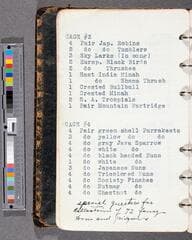 CAGE #3
4 Pair Jap. Robins
2 do do Tumblers
2 Sky Larks (in song)
2 Europ. Black Birds
2 do Thrushes
1 East India Minah
1 do Shama Thrush
1 Crested Bullbull
1 Crested Minah
2 S. A. Troopials
1 Pair Mountain Partridge
CAGE #4
4 Pair green shell Parrakeets
2 do yellow do do
4 do gray Java Sparrow
4 do white do
4 do black headed Nuns
4 do White do
4 do Tricolored Nuns
4 do Society Finches
4 do Nutmeg do
4 do Chestnut do
special quarters for
of 72 fancy